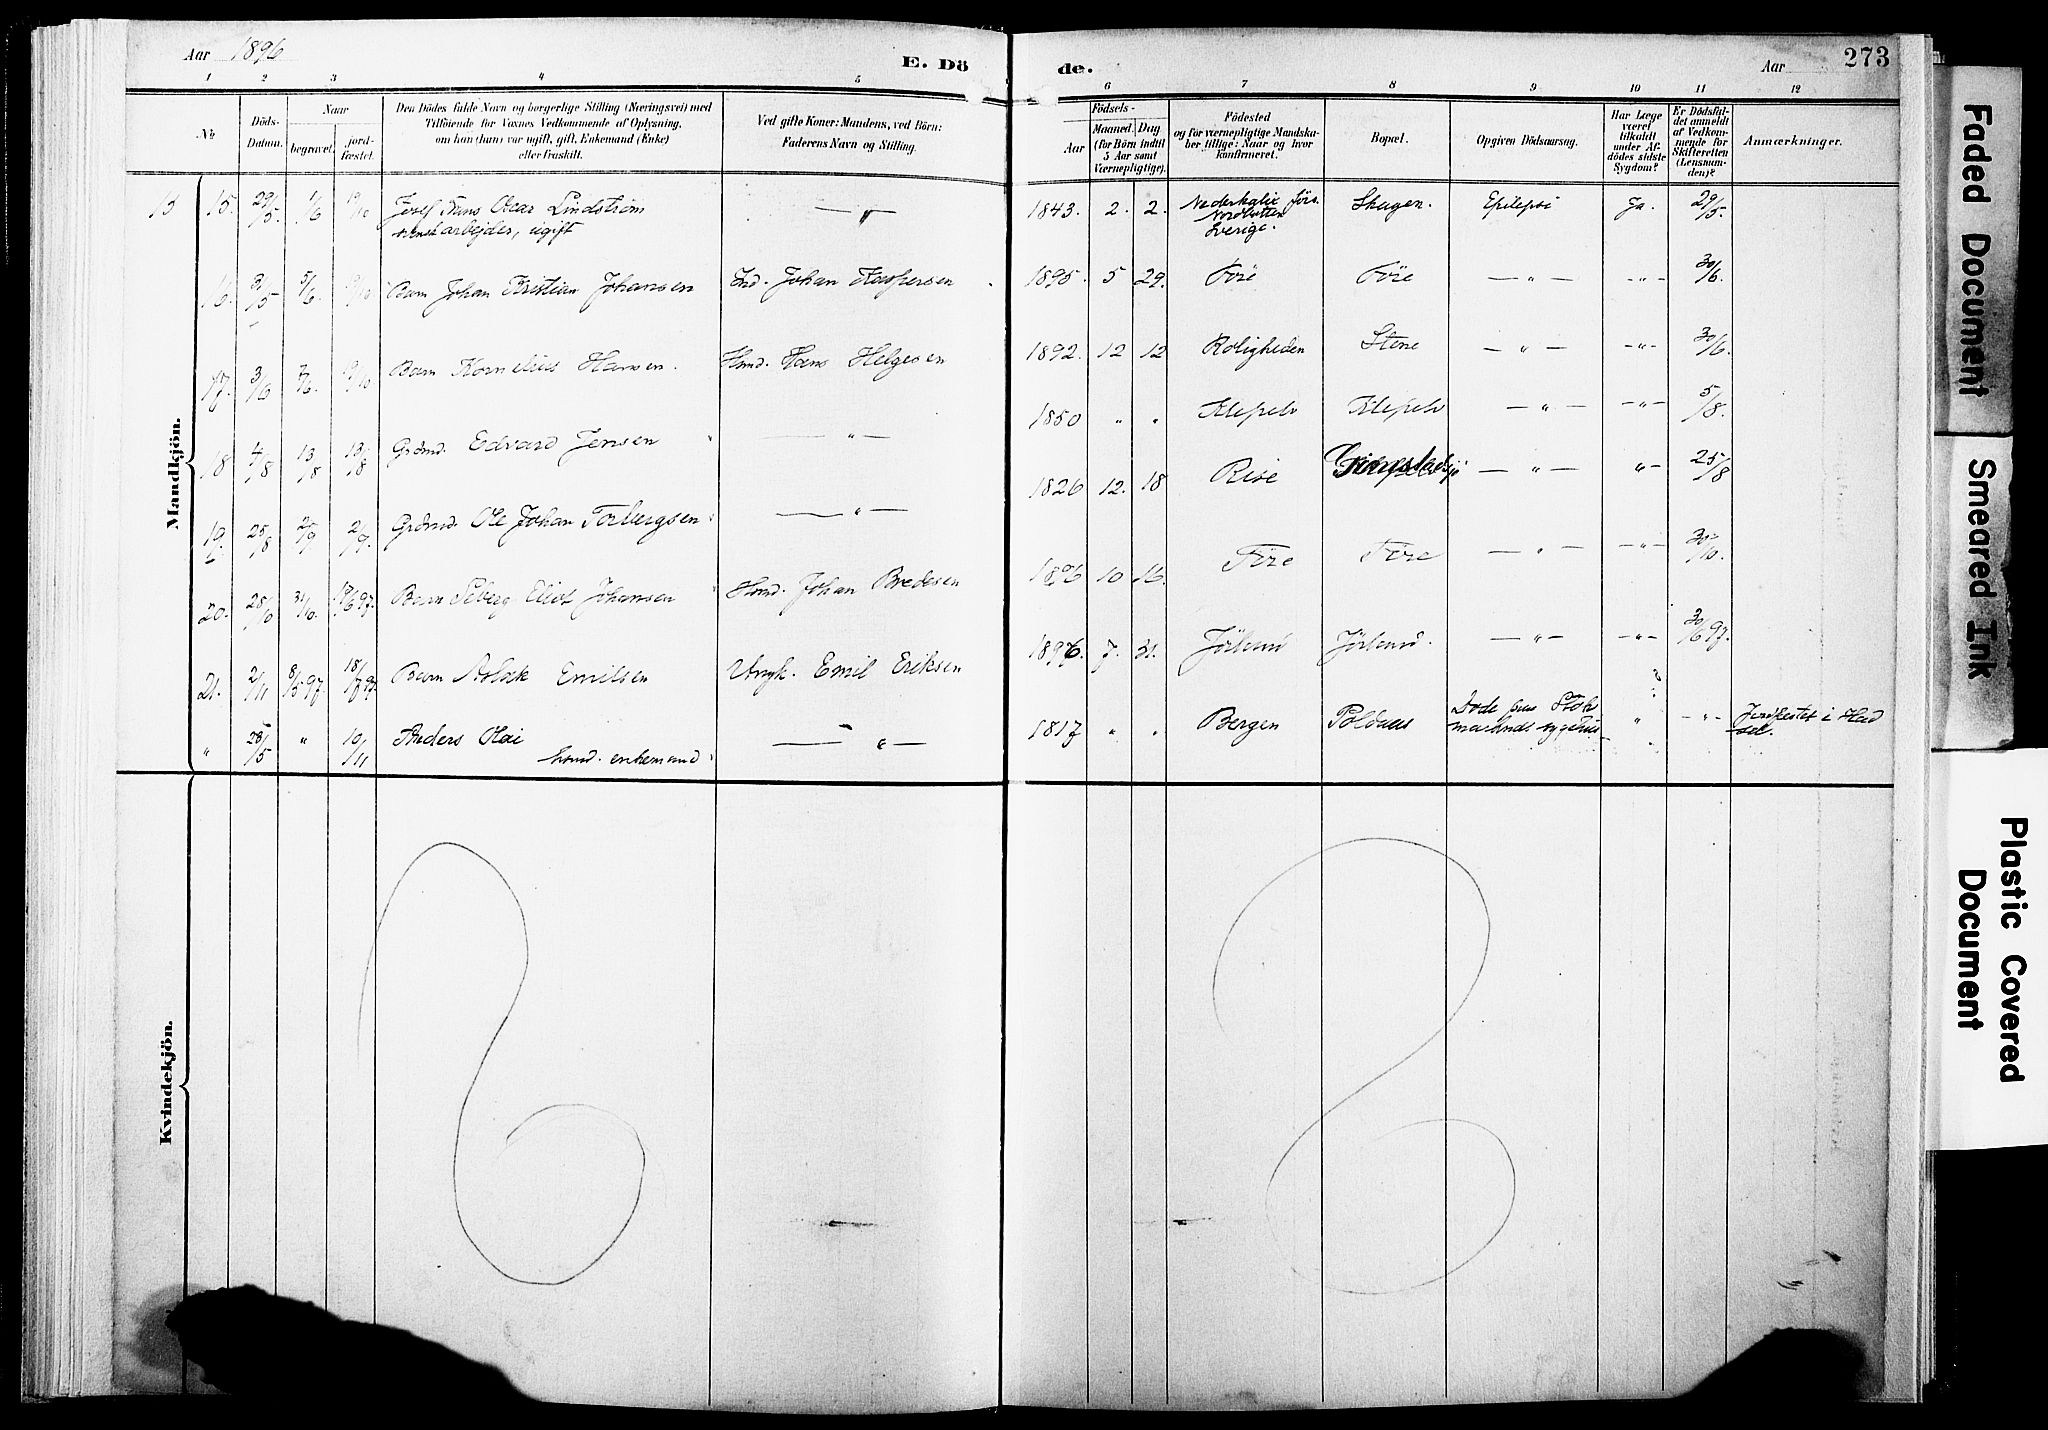 Aar 1896
E. Dö
de.
Aar
273
1 2 3 4 5 6 7 8 9 10 11 12
No
Döds-
Datum.
Naar
begravet.
jord-
fæstet.
Den Dödes fulde Navn og borgerlige Stilling (Næringsvei) med
Tilföiende for Voxnes Vedkommende af Oplysning,
om han (hun) var ugift, gift, Enkemand (Enke)
eller fraskilt.
Ved gifte Koner: Mandens, ved Börn:
Faderens Navn og Stilling.
Födsels-
Aar
Maaned. Dag
(for Börn indtil
5 Aar samt
Værnepligtige).
Födested
og for værnepligtige Mandska-
ber tillige: Naar og hvor
konfirmeret.
Bopæl.
Opgiven Dödsaarsag.
Har Læge
været
tilkaldt
under Af-
dödes sidste
Sygdom?
Er Dödsfal-
det anmeldt
af Vedkom-
mende for
Skifteretten
(Lensman-
den)?
Anmærkninger.
Mandkjön.
13 15. 29/5. 1/6 Josef Frans Oscar Lindström — " 1843. 2. 2. Skagen. Epilepsi Ja. 29/5.
svensk arbejder, ugift
Sverige.
16. 31/5 5/6. Barn Johan Kristian Johansen Ind. Johan Kaspersen 1895. 5 29. Före Före — " — - " - 30/6.
17. 3/6 7/6. Barn Kornelius Hansen. Hmd. Hans Helgesen 1892. 12 12 Roligheden Stene — " — - " - 30/6.
18 4/8 13/8 13/8 Grdmd. Edvard Jensen — " — 1850 " " Klepelv Klepelv — " — - " - 5/8.
19 25/8 2/9 2/9. Grdmd. Ole Johan Torbergsen — " — 1826 12. 18 Rise — " — " - 25/8
20. 28/10 31/10. Barn Seberg Eliot Johansen Hmd. Johan Bredesen 1896 10 16. Före Före — " — - " - 30/10.
21. 2/11 8/5 97. 18/7 97. Barn Aslak Emilsen Ungk. Emil Eriksen 1896. 7. 31. Jörlund Jörlund. — " — - " - 30/6 97.
" 28/5 " 10/11 Anders Hai — " — 1817 " " Bergen Poldnes Döde paa Stok " - " - Jordfæstet i Had
hmd. enkemand marknes sygehus sel.
Kvindekjön.
Faded Document
Smeared Ink
Plastic Covered
Document